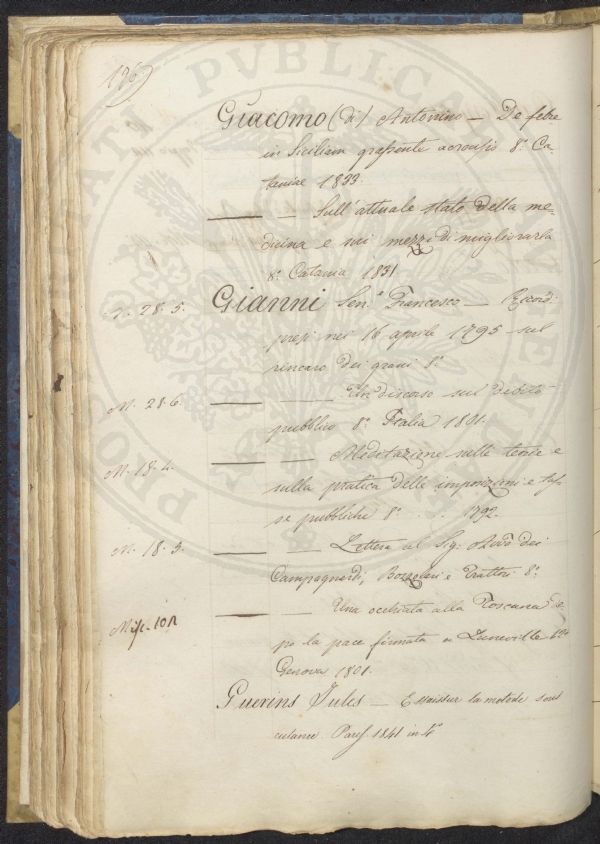 196)
Giacomo (di) Antonino — De febre
in Siciliam
8.° Ca-
taniae 1833.
— Sull'attuale stato della me-
dicina e sui mezzi di migliorarla
8.° Catania 1831
28.5. Gianni Sen.e Francesco — Ricordi
presi nei 16 aprile 1795 sul
rincaro dei grani 8.°
M. 28.6. — Un discorso sul debito
pubblico 8.° Italia 1801.
M. 18.4. — Meditazione sulla teoria e
sulla pratica delle imposizioni e tas-
se pubbliche 8.° . . . 1792.
M. 18.3. — Lettera al Sig.
dei
Campagnuoli, Bozzolari e Trattori 8.°
Mis. 101 — Una occhiata alla Toscana do-
po la pace firmata a Luneville
Genova 1801.
Guerins Jules — Essai sur la metode sous
cutanée Paris 1841 in 4°
PRO PUBLICA